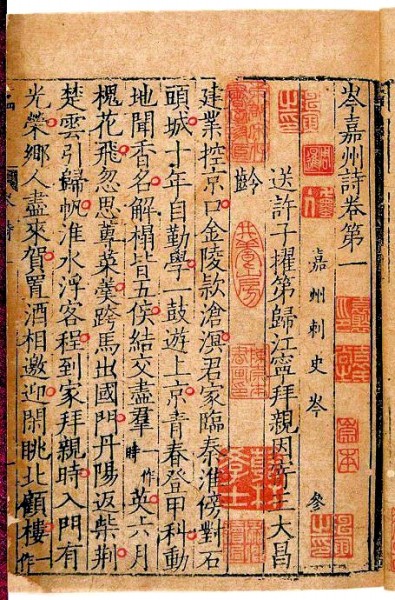 岑嘉州詩卷第一
嘉州刺史岑 參
送許子擢第歸江寧拜親因寄王大昌
齡
建業控京口金陵款滄溟君家臨秦淮傍對石
頭城十年自勤學一鼓遊上京青春登甲科動
地聞香名解榻皆五侯結交盡羣一作時英六月
槐花飛忽思蓴菜羹跨馬出國門丹陽返柴荊
楚雲引歸帆淮水浮客程到家拜親時入門有
光榮鄉人盡來賀置酒相邀迎閑眺北顧樓作
宋本